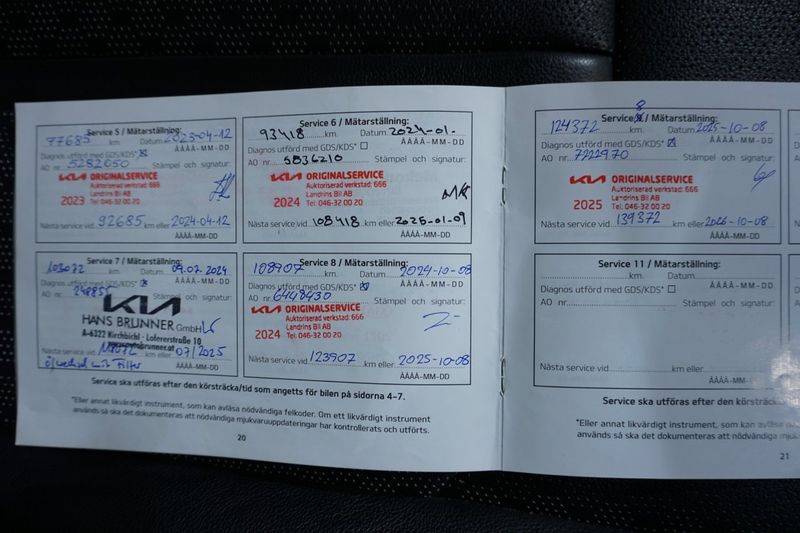 Service 5 / Mätarställning:
77685 km. Datum 2023-04-12
Diagnos utförd med GDS/KDS* ÅÅÅÅ-MM-DD
AO nr. 5282050 Stämpel och signatur:
KIA ORIGINALSERVICE
Auktoriserad verkstad: 666
Landrins Bil AB
2023 Tel: 046-32 00 20
Nästa service vid 92685 km eller 2024-04-12
ÅÅÅÅ-MM-DD
Service 6 / Mätarställning:
93418 km. Datum 2024-01-
Diagnos utförd med GDS/KDS* ÅÅÅÅ-MM-DD
AO nr. 5836210 Stämpel och signatur:
KIA ORIGINALSERVICE
Auktoriserad verkstad: 666
Landrins Bil AB
2024 Tel: 046-32 00 20
Nästa service vid 108418 km eller 2025-01-09
ÅÅÅÅ-MM-DD
Service 7 / Mätarställning:
103072 km. Datum 09.07.2024
Diagnos utförd med GDS/KDS* ÅÅÅÅ-MM-DD
AO nr. Stämpel och signatur:
KIA
HANS BRUNNER GmbH
A-6322 Kirchbichl - Lofererstraße 10
Nästa service vid km eller 07/2025
Ölwechsel mit Filter ÅÅÅÅ-MM-DD
Service 8 / Mätarställning:
108907 km. Datum 2024-10-08
Diagnos utförd med GDS/KDS* ÅÅÅÅ-MM-DD
AO nr. 6448430 Stämpel och signatur:
KIA ORIGINALSERVICE
Auktoriserad verkstad: 666
Landrins Bil AB
2024 Tel: 046-32 00 20
Nästa service vid 123907 km eller 2025-10-08
ÅÅÅÅ-MM-DD
Service ska utföras efter den körsträcka/tid som angetts för bilen på sidorna 4-7.
*Eller annat likvärdigt instrument, som kan avläsa nödvändiga felkoder. Om ett likvärdigt instrument
används så ska det dokumenteras att nödvändiga mjukvaruuppdateringar har kontrollerats och utförts.
20
Service 8 / Mätarställning:
124372 km. Datum 2025-10-08
Diagnos utförd med GDS/KDS* ÅÅÅÅ-MM-DD
AO nr. 7221970 Stämpel och signatur:
KIA ORIGINALSERVICE
Auktoriserad verkstad: 666
Landrins Bil AB
2025 Tel: 046-32 00 20
Nästa service vid 139372 km eller 2026-10-08
ÅÅÅÅ-MM-DD
Service 11 / Mätarställning:
km. Datum
Diagnos utförd med GDS/KDS* ÅÅÅÅ-MM-DD
AO nr. Stämpel och signatur:
Nästa service vid km eller
ÅÅÅÅ-MM-DD
Service ska utföras efter den körsträcka
*Eller annat likvärdigt instrument, som kan avläsa
används så ska det dokumenteras att nödvändiga
21